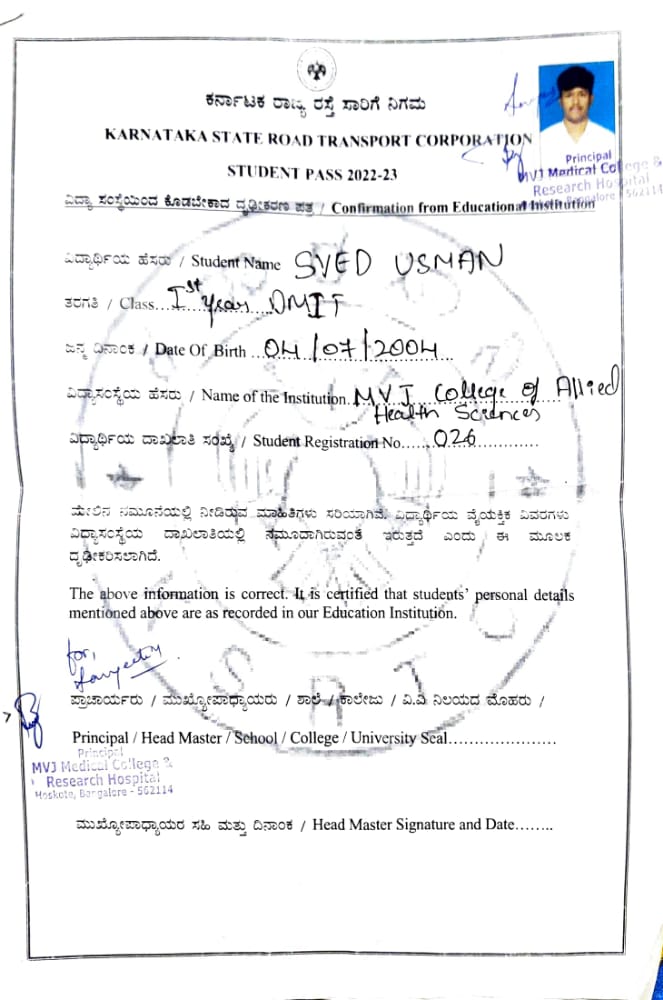 ಕರ್ನಾಟಕ ರಾಜ್ಯ ರಸ್ತೆ ಸಾರಿಗೆ ನಿಗಮ
KARNATAKA STATE ROAD TRANSPORT CORPORATION
STUDENT PASS 2022-23
Principal
MVJ Medical College &
Research Hospital
Bangalore - 562114
ವಿದ್ಯಾ ಸಂಸ್ಥೆಯಿಂದ ಕೊಡಬೇಕಾದ ದೃಢೀಕರಣ ಪತ್ರ / Confirmation from Educational Institution
ವಿದ್ಯಾರ್ಥಿಯ ಹೆಸರು / Student Name SYED USMAN
ತರಗತಿ / Class...Ist Year DMIT
ಜನ್ಮ ದಿನಾಂಕ / Date Of Birth ...04/07/2004...
ವಿದ್ಯಾಸಂಸ್ಥೆಯ ಹೆಸರು / Name of the Institution. MVJ College of Allied
Health Sciences
ವಿದ್ಯಾರ್ಥಿಯ ದಾಖಲಾತಿ ಸಂಖ್ಯೆ / Student Registration No......026.............
ಮೇಲಿನ ನಮೂನೆಯಲ್ಲಿ ನೀಡಿರುವ ಮಾಹಿತಿಗಳು ಸರಿಯಾಗಿವೆ. ವಿದ್ಯಾರ್ಥಿಯ ವೈಯಕ್ತಿಕ ವಿವರಗಳು
ವಿದ್ಯಾಸಂಸ್ಥೆಯ ದಾಖಲಾತಿಯಲ್ಲಿ ನಮೂದಾಗಿರುವಂತೆ ಇರುತ್ತದೆ ಎಂದು ಈ ಮೂಲಕ
ದೃಢೀಕರಿಸಲಾಗಿದೆ.
The above information is correct. It is certified that students' personal details
mentioned above are as recorded in our Education Institution.
for,
ಪ್ರಾಚಾರ್ಯರು / ಮುಖ್ಯೋಪಾಧ್ಯಾಯರು / ಶಾಲೆ / ಕಾಲೇಜು / ವಿ.ವಿ ನಿಲಯದ ಮೊಹರು /
Principal / Head Master / School / College / University Seal.....................
Principal
MVJ Medical College &
Research Hospital
Hoskote, Bangalore - 562114
ಮುಖ್ಯೋಪಾಧ್ಯಾಯರ ಸಹಿ ಮತ್ತು ದಿನಾಂಕ / Head Master Signature and Date........
KSRTC